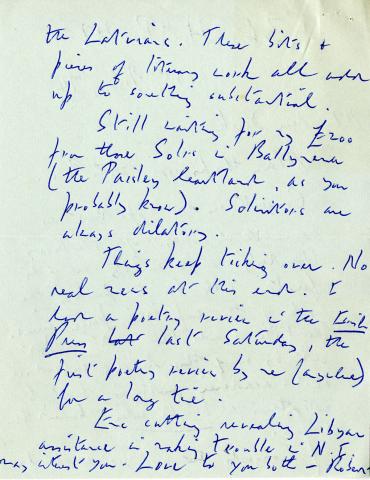 the Latvians. These bits &
pieces of literary work all add
up to something substantial.
Still waiting for my £200
from those Solrs in Ballymena
(the Paisley heartland, as you
probably know). Solicitors are
always dilatory.
Things keep ticking over. No
real news at this end. I
a poetry review in the Irish
Press last Saturday, the
first poetry review by me (anywhere)
for a long time.
Enc cutting revealing Libyan
assistance in making trouble in N.I.
may interest you. Love to you both – Robert